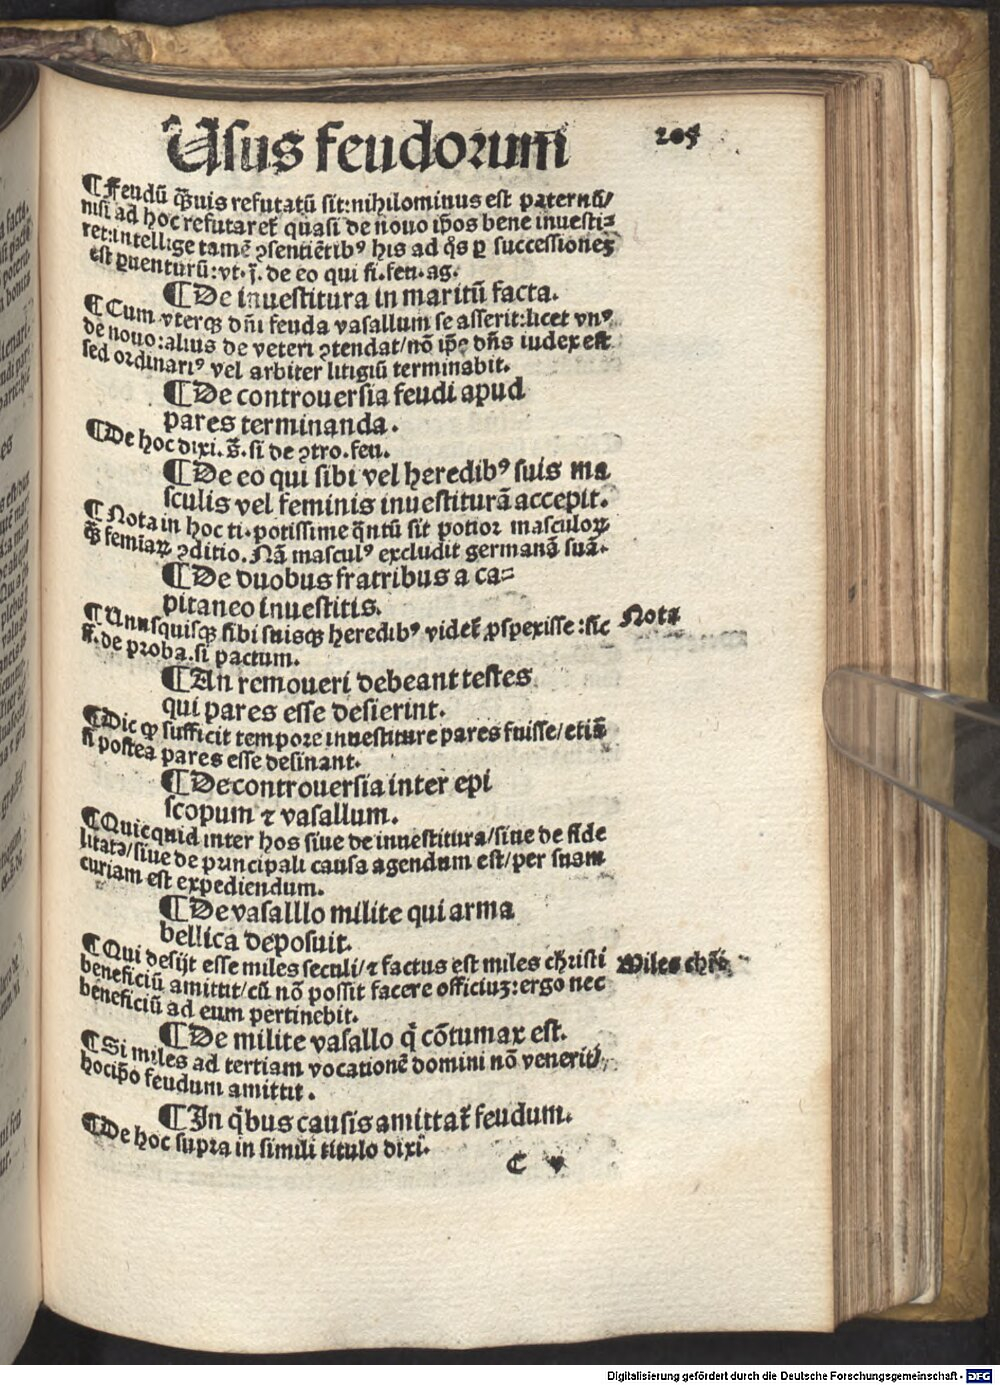 Usus feudorum
205
¶ Feudū q̄uis refutatū sit:nihilominus est paternū/
nisi ad hoc refutaret̄ quasi de nouo ip̄os bene inuesti⸗
ret:intellige tamē ꝯsentiētibꝰ his ad q̄s ꝑ successioneʒ
est ꝑuenturū:vt.j̄. de eo qui fi.feu.ag.
¶ De inuestitura in maritū facta.
¶ Cum vterqꝫ dn̄i feuda vasallum se asserit:licet vnꝰ
de nouo:alius de veteri ꝯtendat/nō ip̄e dn̄s iudex est
sed ordinariꝰ vel arbiter litigiū terminabit.
¶ De controuersia feudi apud
pares terminanda.
¶ De hoc dixi.s̄.si de ꝯtro.feu.
¶ De eo qui sibi vel heredibꝰ suis ma
sculis vel feminis inuestiturā accepit.
¶ Nota in hoc ti.potissime q̄ntū sit potior masculoꝝ
q̄ꝫ femiaꝝ ꝯditio. Nā masculꝰ excludit germanā suā.
¶ De duobus fratribus a ca⸗
pitaneo inuestitis.
¶ Unusquisqꝫ sibi suisqꝫ heredibꝰ videt̄ ꝓspexisse:sic
Nota
ff.de proba.si pactum.
¶ An remoueri debeant testes
qui pares esse desierint.
¶ Dic ꝙ sufficit tempore inuestiture pares fuisse/etiā
si postea pares esse desinant.
¶ De controuersia inter epi
scopum ⁊ vasallum.
¶ Quicquid inter hos siue de inuestitura/siue de fide
litate/siue de principali causa agendum est/per suam
curiam est expediendum.
¶ De vasalllo milite qui arma
bellica deposuit.
¶ Qui desijt esse miles seculi/⁊ factus est miles christi
Miles chr̄i
beneficiū amittit/cū nō possit facere officiuʒ:ergo nec
beneficiū ad eum pertinebit.
¶ De milite vasallo q̇ cōtumax est.
¶ Si miles ad tertiam vocationē domini nō venerit/
hocip̄o feudum amittit.
¶ In q̇bus causis amittat̄ feudum.
¶ De hoc supra in simili titulo dixi.
C v
Digitalisierung gefördert durch die Deutsche Forschungsgemeinschaft - DFG